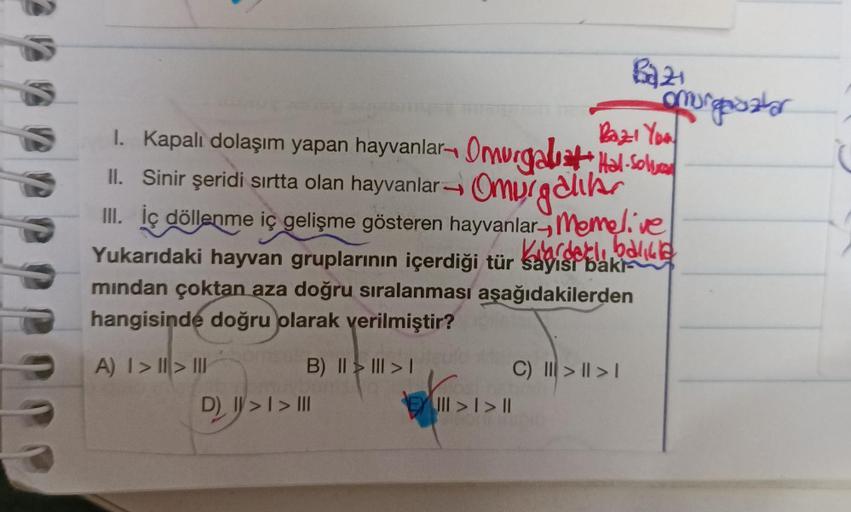 Bazı
omurgasızlar
I. Kapalı dolaşım yapan hayvanlar→ Omurgalılar+ Bazı Yum. Hal. Solucan
II. Sinir şeridi sırtta olan hayvanlar→ Omurgalılar
III. İç döllenme iç gelişme gösteren hayvanlar→ Memeli ve
Kıkırdaklı balıklar
Yukarıdaki hayvan gruplarının içerdiği tür sayısı bakı-
mından çoktan aza doğru sıralanması aşağıdakilerden
hangisinde doğru olarak verilmiştir?
A) I > II > III B) II > III > I C) III > II > I
D) II > I > III E) III > I > II